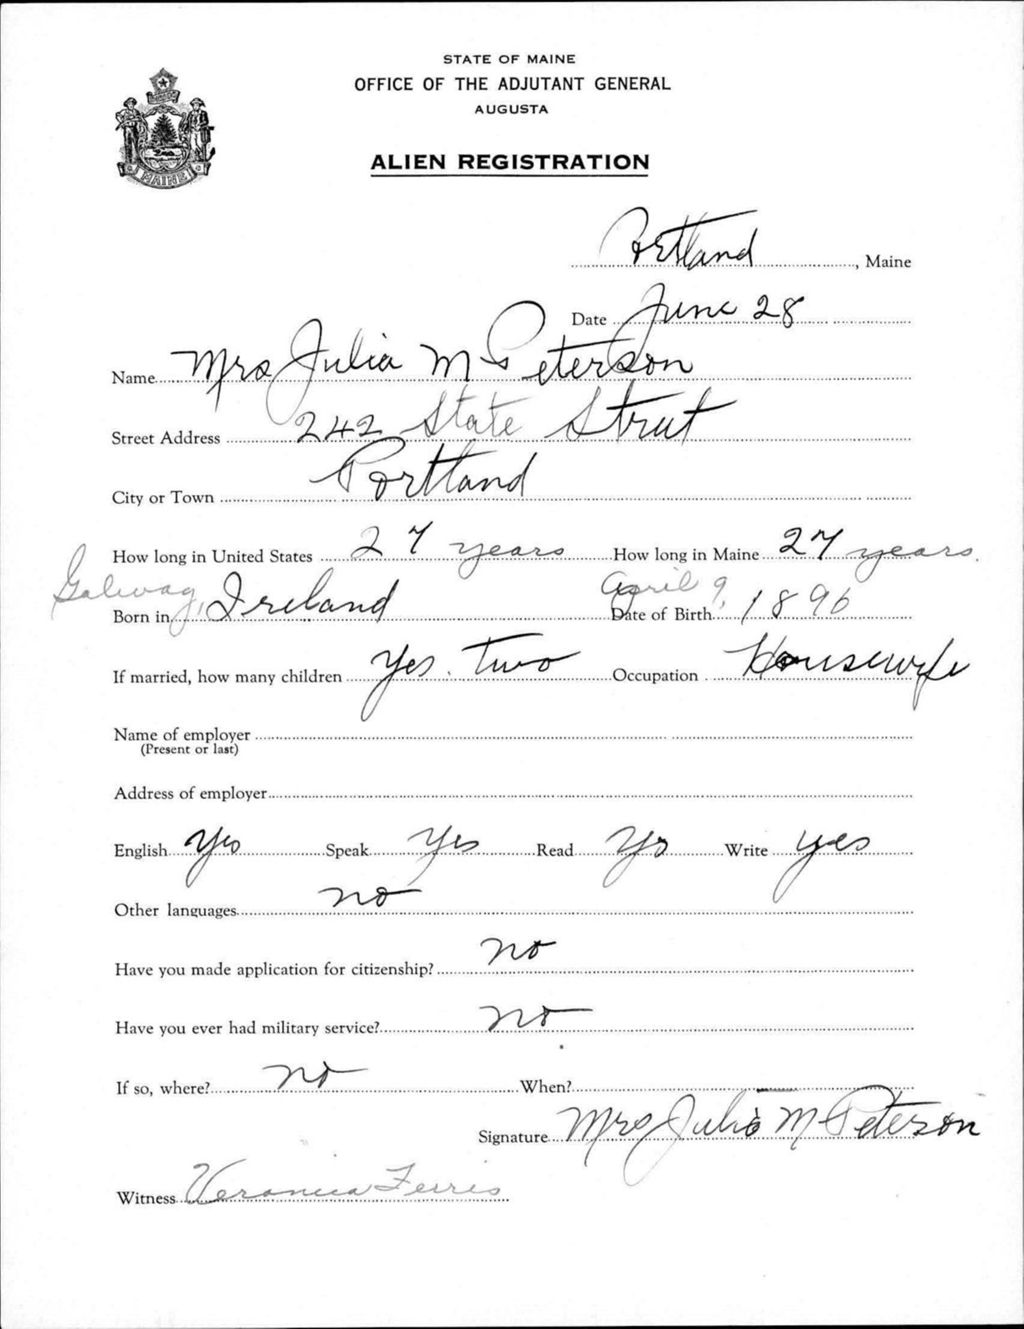 STATE OF MAINE
OFFICE OF THE ADJUTANT GENERAL
AUGUSTA
ALIEN REGISTRATION
MAINE
Portland, Maine
Date June 28
Name Mrs Julia M Peterson
Street Address 242 State Street
City or Town Portland
How long in United States 27 years How long in Maine 27 years
Born in Galway, Ireland Date of Birth April 9, 1896
If married, how many children Yes. two Occupation Housewife
Name of employer
(Present or last)
Address of employer
English Yes Speak Yes Read Yes Write yes
Other languages no
Have you made application for citizenship? no
Have you ever had military service? no
If so, where? no When?
Signature Mrs Julia M Peterson
Witness Veronica Ferris